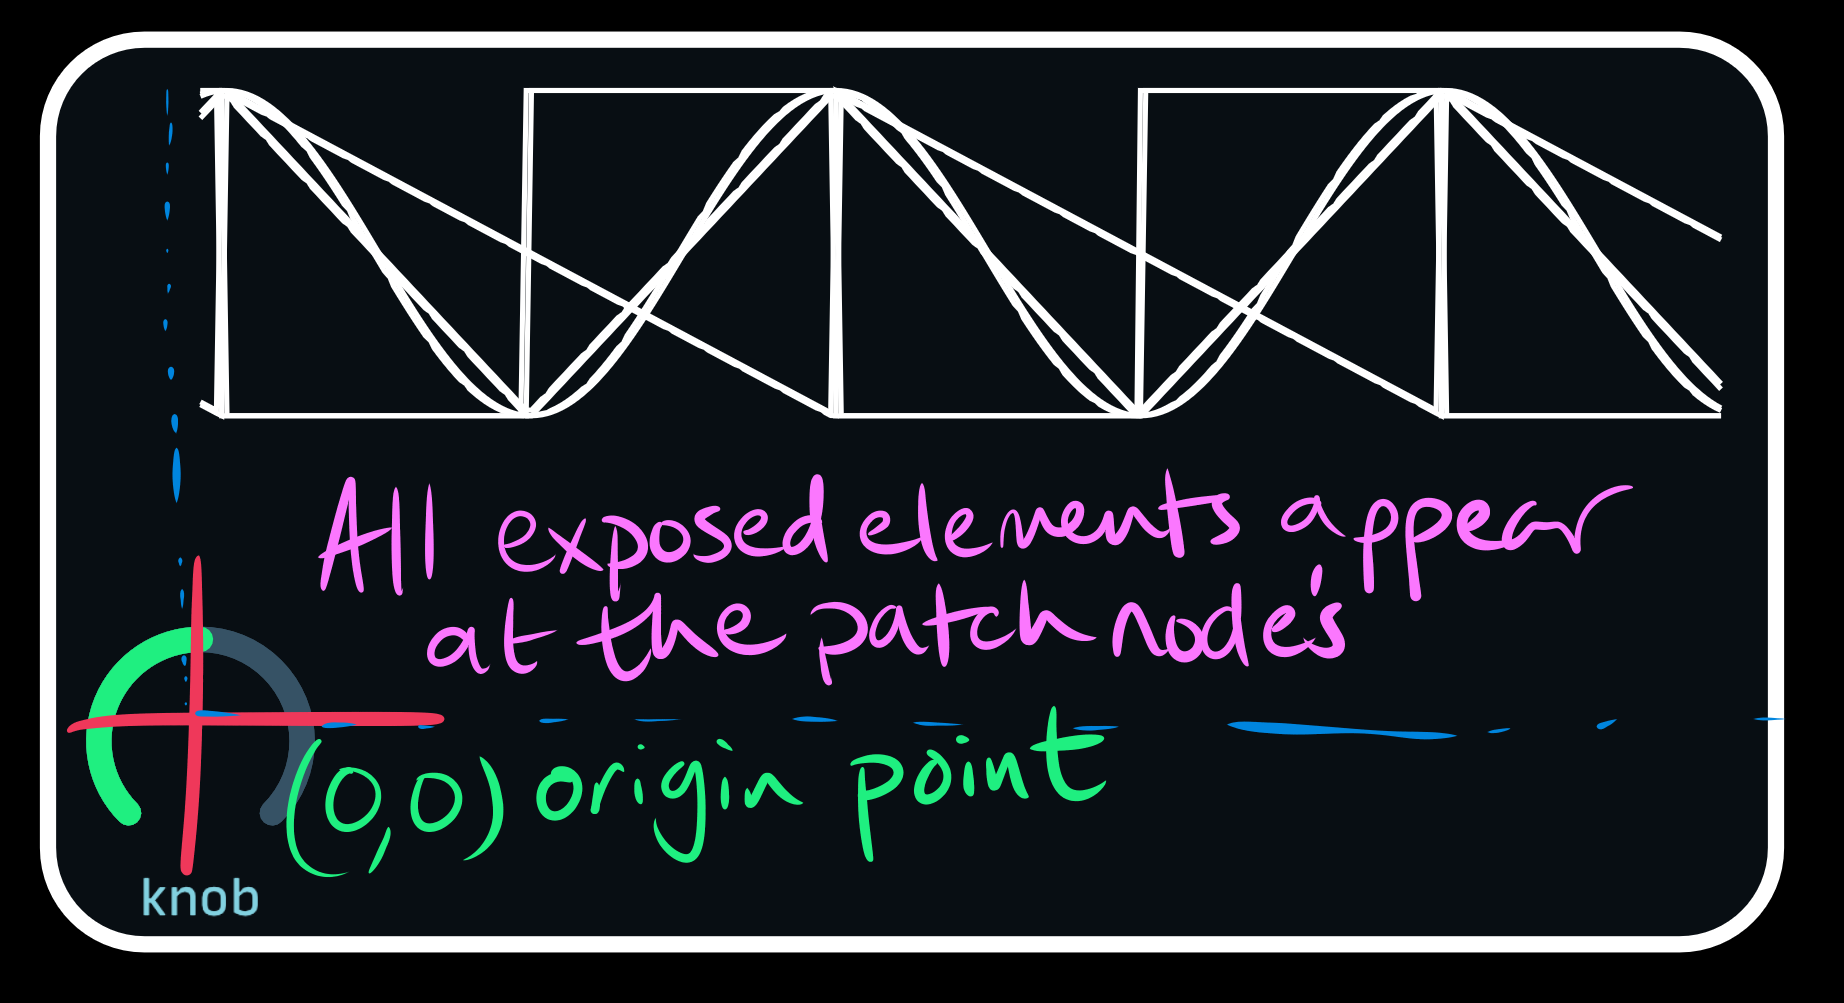 All exposed elements appear
at the patch node's
(0,0) origin point
knob